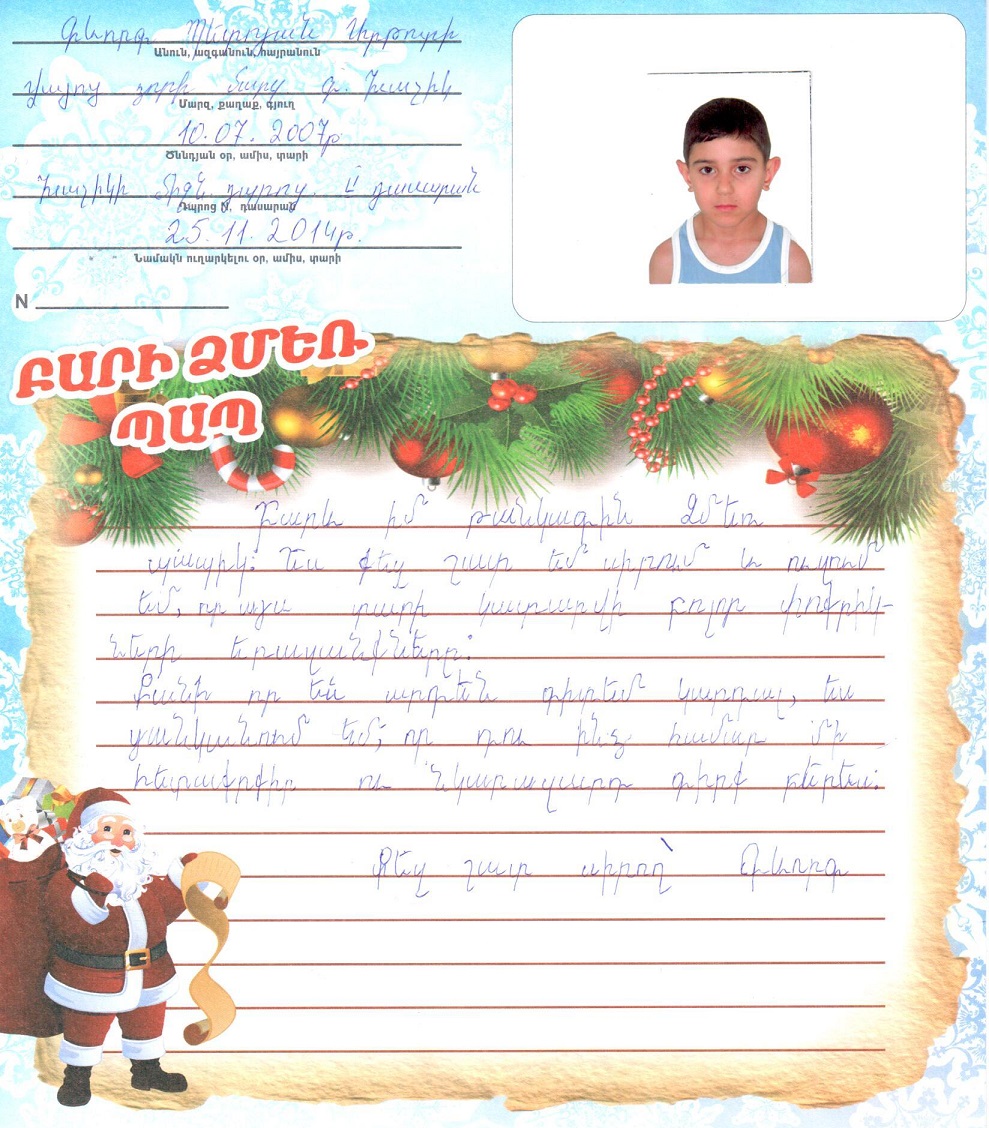 Գևորգ Պետրոսյան Արթուրի
Անուն, ազգանուն, հայրանուն
Վայոց ձորի մարզ գ. Խաչիկ
Մարզ, քաղաք, գյուղ
10.07.2007թ
Ծննդյան օր, ամիս, տարի
Խաչիկի միջն. դպրոց. դասարան
Դպրոց N, դասարան
25.11.2014թ.
Նամակն ուղարկելու օր, ամիս, տարի
N
ԲԱՐԻ ՁՄԵՌ
ՊԱՊ
Բարև իմ թանկագին Ձմեռ
պապիկ: Ես քեզ շատ եմ սիրում և ուզում
եմ, որ այս տարի կատարվի բոլոր փոքրիկ-
ների երազանքները:
Քանի որ ես արդեն գիտեմ կարդալ, ես
ցանկանում եմ, որ դու ինձ համար մի
հետաքրքիր ու նկարազարդ գիրք բերես:
Քեզ շատ սիրող՝ Գևորգ